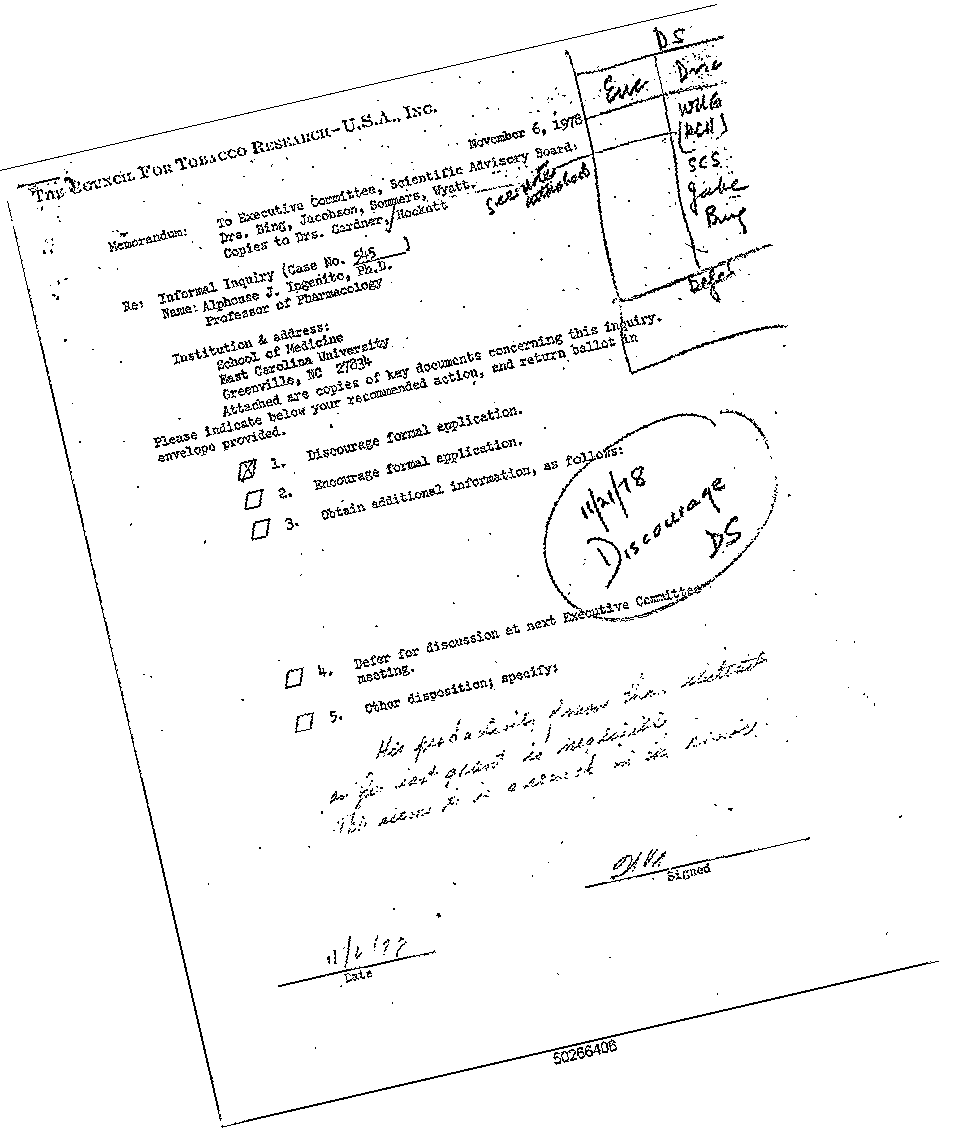 DS
Enc
Disc
WUG
(RCH)
SCS
Jacbe
Bing
Defer
THE COUNCIL FOR TOBACCO RESEARCH—U.S.A., INC.
November 6, 1978
Memorandum: To Executive Committee, Scientific Advisory Board:
Drs. Bing, Jacobson, Sommers, Wyatt.
Copies to Drs. Gardner, / Hockett
See note
attached
Re: Informal Inquiry (Case No. 545 )
Name: Alphonse J. Ingenito, Ph.D.
Professor of Pharmacology
Institution & address:
School of Medicine
East Carolina University
Greenville, NC 27834
Attached are copies of key documents concerning this inquiry.
Please indicate below your recommended action, and return ballot in
envelope provided.
1. Discourage formal application.
2. Encourage formal application.
3. Obtain additional information, as follows:
11/21/78
Discourage
DS
4. Defer for discussion at next Executive Committee
meeting.
5. Other disposition; specify:
His productivity from the abstract
on his last grant is negligible
This seems to be a rework of the
Signed
Date
50266406